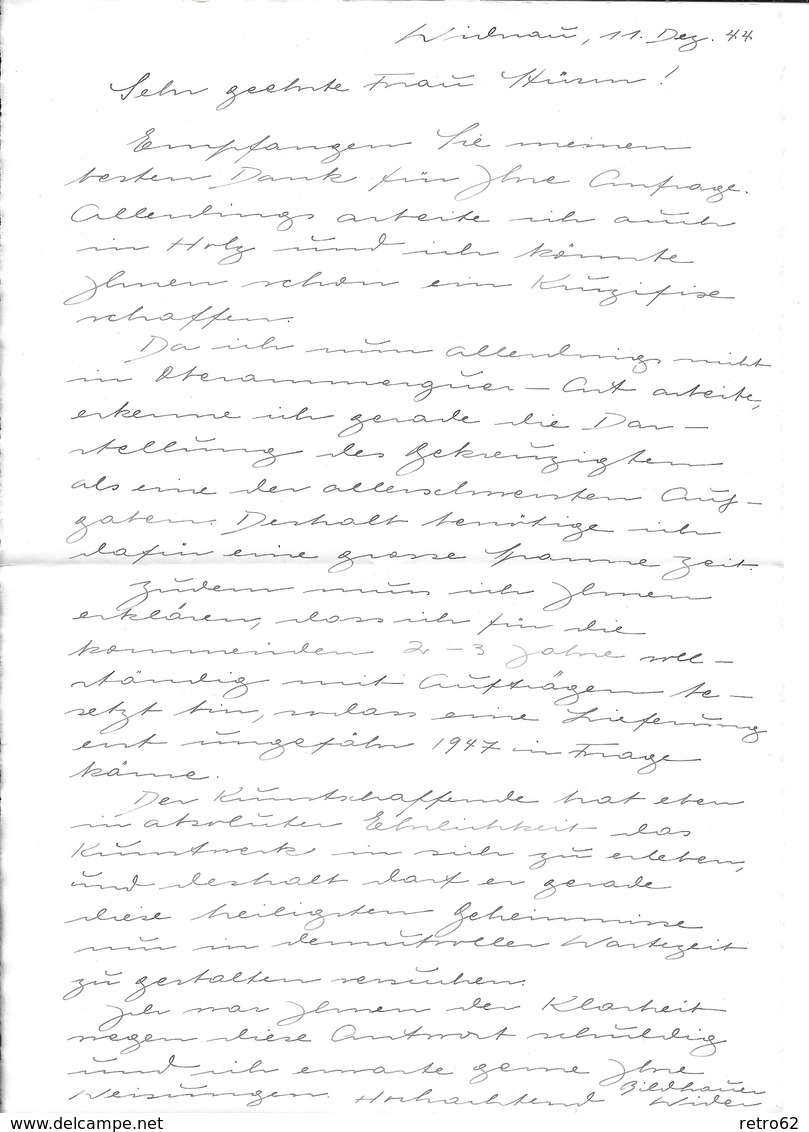 Widnau, 11. Dez. 44
Sehr geehrte Frau Hürm!
Empfangen Sie meinen
besten Dank für Ihre Anfrage.
Allerdings arbeite ich auch
in Holz und ich könnte
Ihnen schon ein Kruzifixe
schaffen.
Da ich nun allerdings nicht
in Oberammerguer-Art arbeite,
erkenne ich gerade die Dar-
stellung des Gekreuzigten
als eine der allerschwersten Auf-
gaben. Deshalb benötige ich
dafür eine grosse Spanne Zeit.
Zudem muss ich Ihnen
erklären, dass ich für die
kommenden 2-3 Jahre voll-
ständig mit Aufträgen be-
setzt bin, sodass eine Lieferung
erst ungefähr 1947 in Frage
käme.
Der Kunstschaffende hat eben
in absoluter Ehrlichkeit das
Kunstwerk in sich zu erleben,
und deshalb darf er gerade
diese heiligsten Geheimnisse
nur in demutvoller Wartezeit
zu gestalten versuchen.
Ich war Ihnen der Klarheit
wegen diese Antwort schuldig
und ich erwarte gerne Ihre
Weisungen. Hochachtend Bildhauer
Wider
www.delcampe.net
retro62